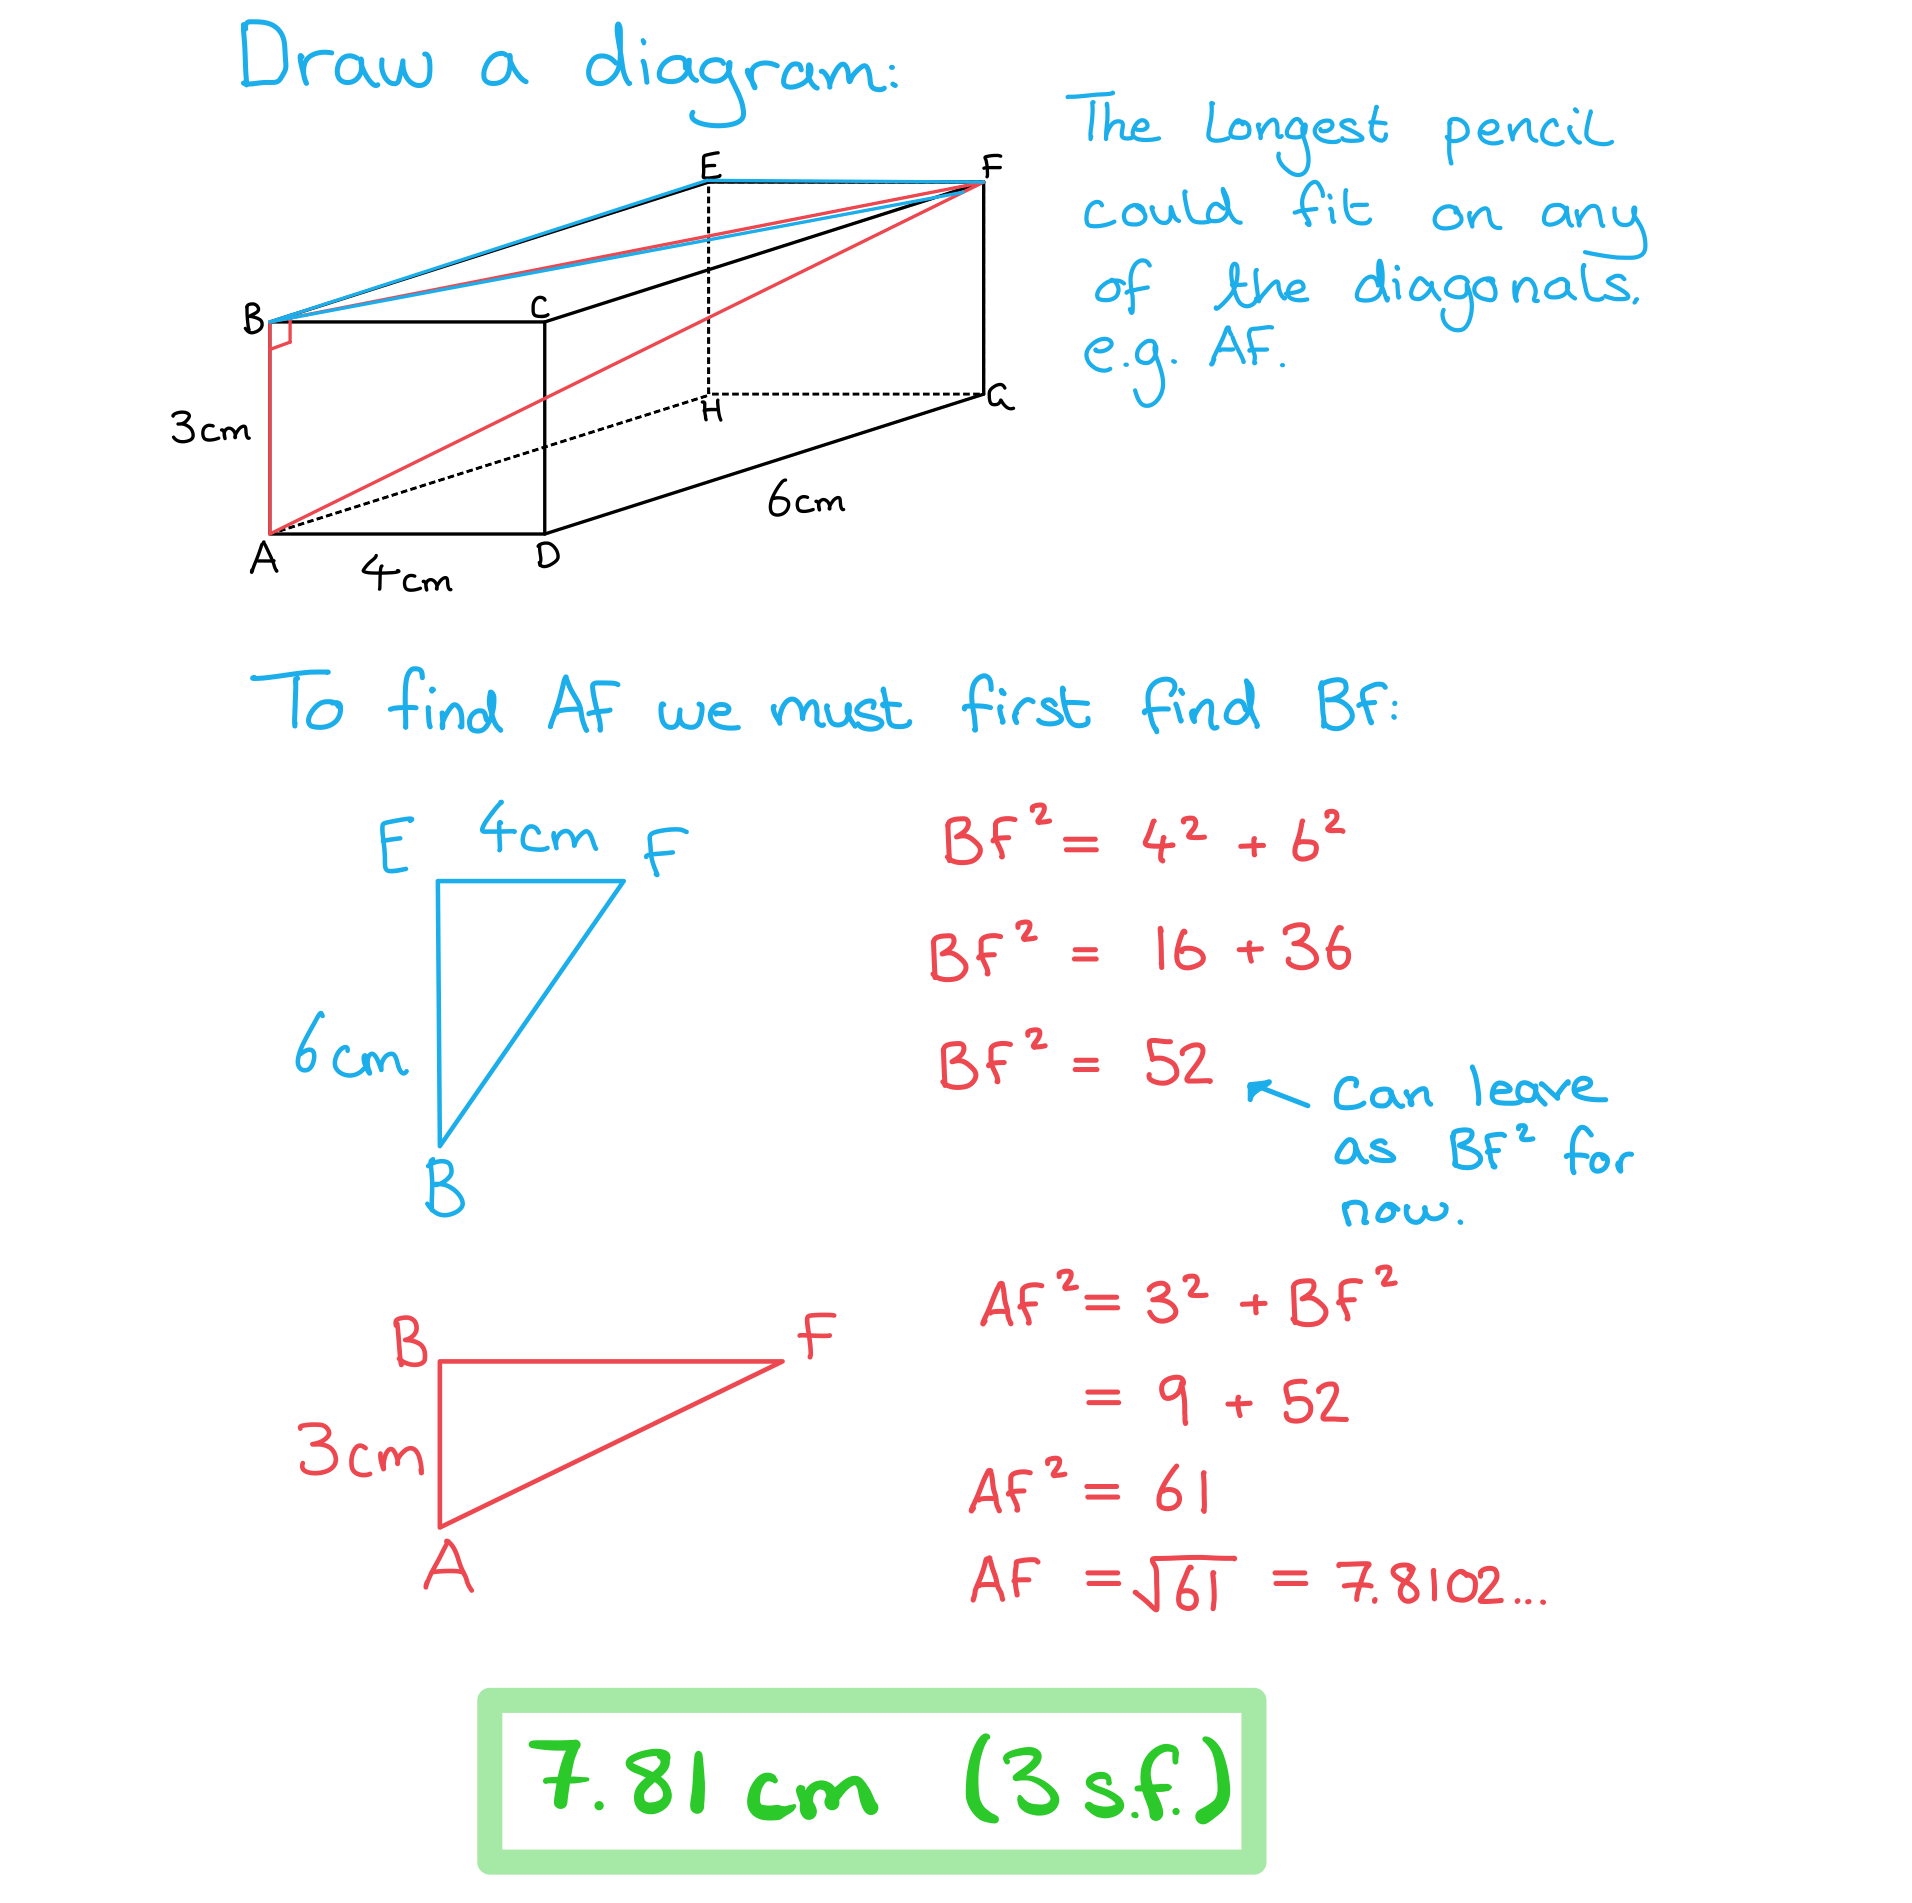 Draw a diagram:
The longest pencil
could fit on any
of the diagonals,
e.g. AF.
E
F
B
C
3cm
H
G
6cm
A
D
4cm
To find AF we must first find BF:
E 4cm F
6cm
B
BF² = 4² + 6²
BF² = 16 + 36
BF² = 52
can leave
as BF² for
now.
B
F
3cm
A
AF² = 3² + BF²
= 9 + 52
AF² = 61
AF = √61 = 7.8102...
7.81 cm (3 s.f.)